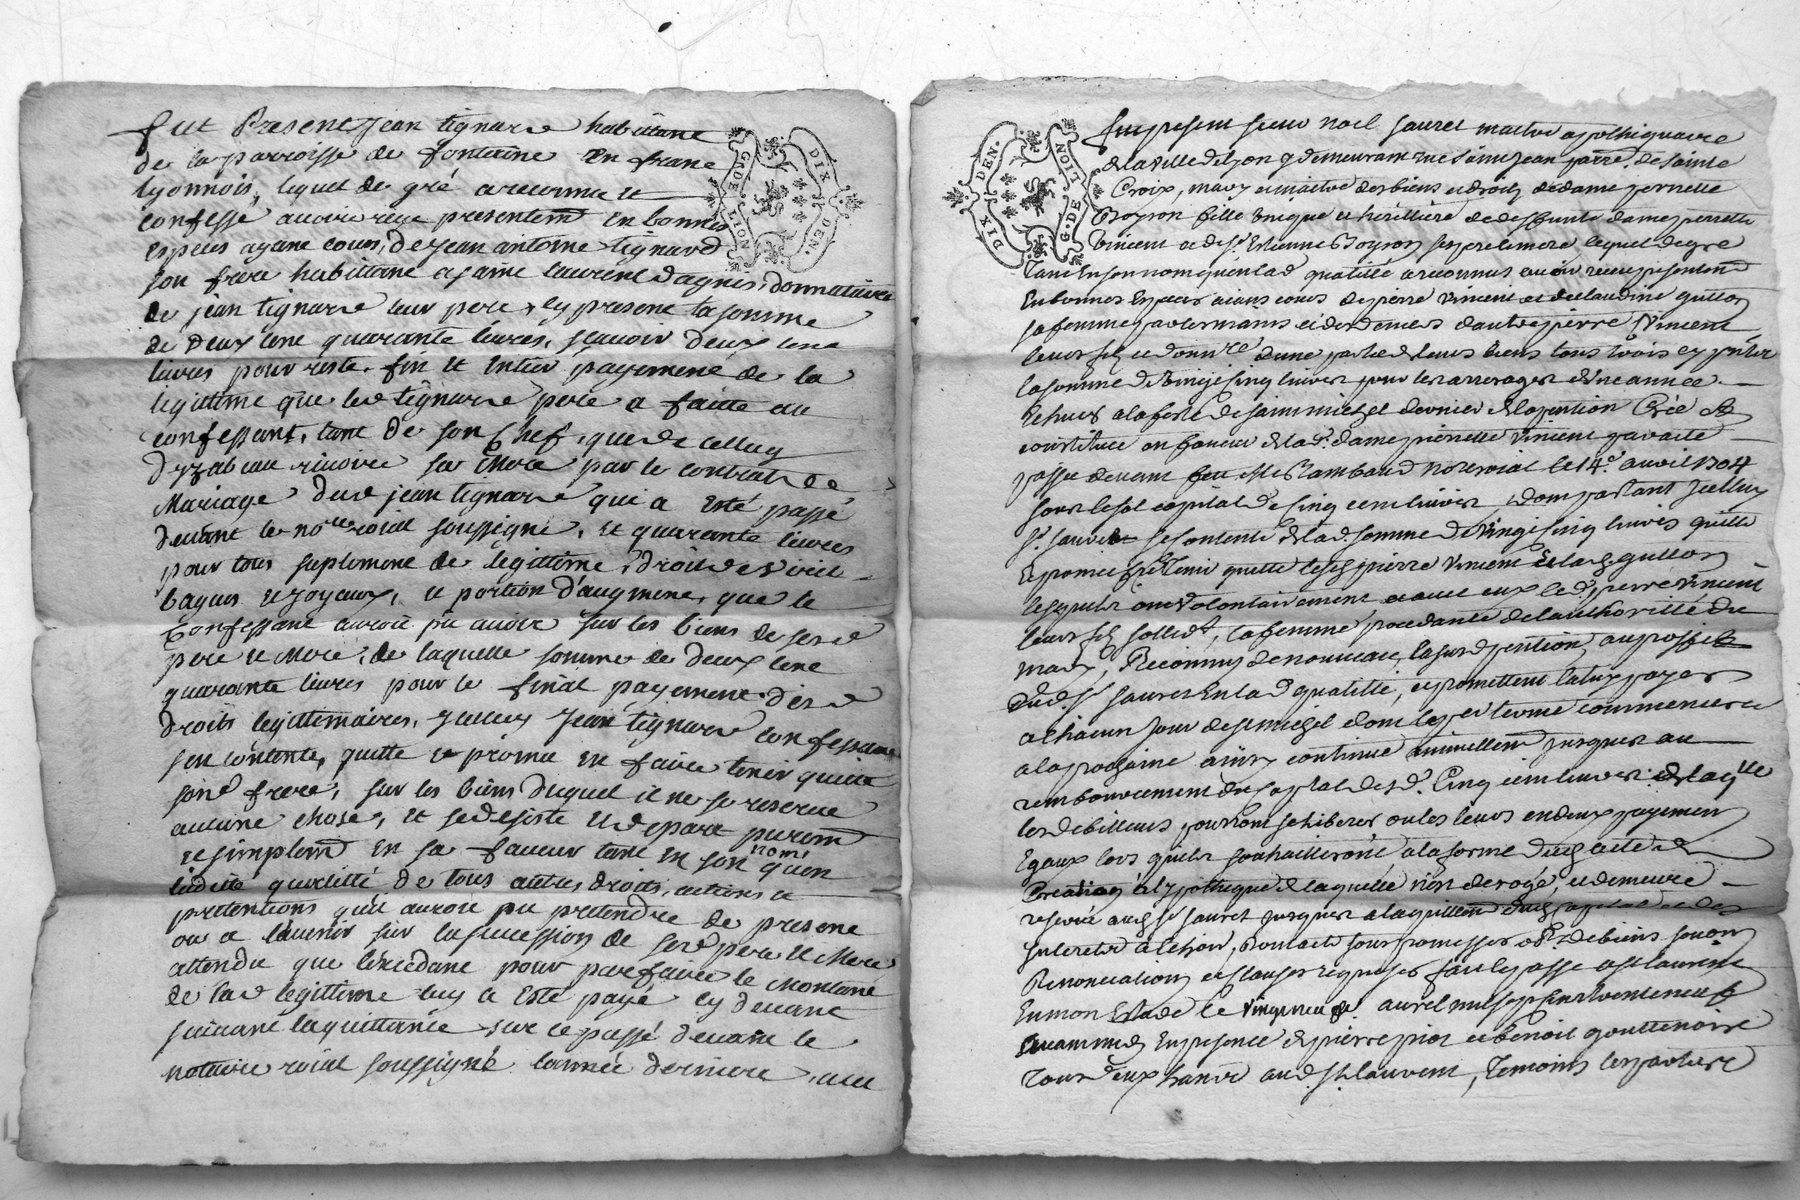 Fut Present Jean tignard habittant
de la parroisse de fontaine en franc
lyonnois, lequel de gré a reconnu et
confessé auoir receu presentemt en bonnes
especes ayant cours, de Jean antoine tignard
son frere habittant a saint laurent dagnis, donnattaire
de jean tignard leur pere, cy present la somme
de Deux cent quarante liures, scauoir deux cent
liures pour reste, fin et entier payement de la
legittime que led tignard pere a faitte au
confessant, tant de son Chef, que de celluy
dyzabeau riuoire sa Mere par le contrat de
Mariage dud jean tignard qui a esté passé
deuant le nore roial soussigné, et quarante liures
pour tous suplement de legittime, droit de
bagues et joyaux, et portion d'augment, que le
Confessant auroit pû auoir sur les biens de sesd
pere et Mere, de laquelle somme de deux cent
quarante liures pour le final payement desd
droits legittimaires, jcelluy Jean tignard confessant
sen contente, quitte et promet en faire tenir quitte
sond frere, sur les biens duquel il ne se reserue
aucune chose, et se desiste et depart puremt
et simplemt en sa faueur tant en son nom qu'en
ladite qualitté de tous autres droits, actions et
pretentions qu'il auroit pu pretendre de present
ou a l'auenir sur la succession de sesd pere et Mere
attendu que lexedant pour parfaire le Montant
de lad legittime luy a esté payé cy deuant
suiuant la quittance sur ce passé deuant le
notaire roial soussigné lannée derniere,
G. DE LION DIX DEN.
G. DE LION DIX DEN.
Fut present sieur noel sauret maitre apothiquaire
de la ville de lyon y demeurant rue saint jean parre. de sainte
Croix, mary et maitre des biens et droits de dame pernette
Boyron fille unique et hérittiere de deffunts dame pierrette
Vincent et de sr. Estienne Boyron ses pere et mere lequel de gré
tant en son nom qu'en lad qualitté a reconnu auoir receu presentemt
En bonnes Especes aiant cours de pierre Vincent et de claudine guitton
sa femme par les mains et des deniers d'autre pierre Vincent
leurs fils et donnre d'une partie de leurs biens tous trois cy pnts
la somme de Vingt cinq liures pour les arrerages d'une année
echues a la feste de saint michel dernier de la pention Créé et
constituée en faueur de lad. dame pierrette Vincent par acte
passé deuant feu Me Rambaud no. roial le 14e. auril 1704
sous le sol capital de cinq cent liures, dont partant Jcelluy
sr. sauret se contente de lad somme de Vingt cinq liures quitte
Et promet faire tenir quitte lesd pierre Vincent et lad guitton
lesquels ont volontairement et auec eux led pierre Vincent
leur fils sollidt, la femme procedante de lauthoritté du
mary, Reconnu de nouueau, la susd pention au proffit
dud sr sauret en lad qualitté, et promettent la luy payer
a chacun jour de st michel dont le per terme commencera
a la prochaine ainsy continué annuellemt jusques au
remboursement du capital desd. Cinq cent liures de laqlle
les debitteurs pourront se liberer ou les leurs en deux payemens
Egaux lors qu'ils souhaitteront a la forme dud acte de
Création a l'hypotheque de laquelle n'est derogé, et demeure
reseruée aud sr sauret jusques a
Renonciation et clauses requises fait et passé a st laurent
En mon Estude le Vingt neuf auril mil sept cent vent neuf
auant midy En presence de pierre priot et benoit gouttenoire
Tous deux hants aud. st laurent, Temoins les parties